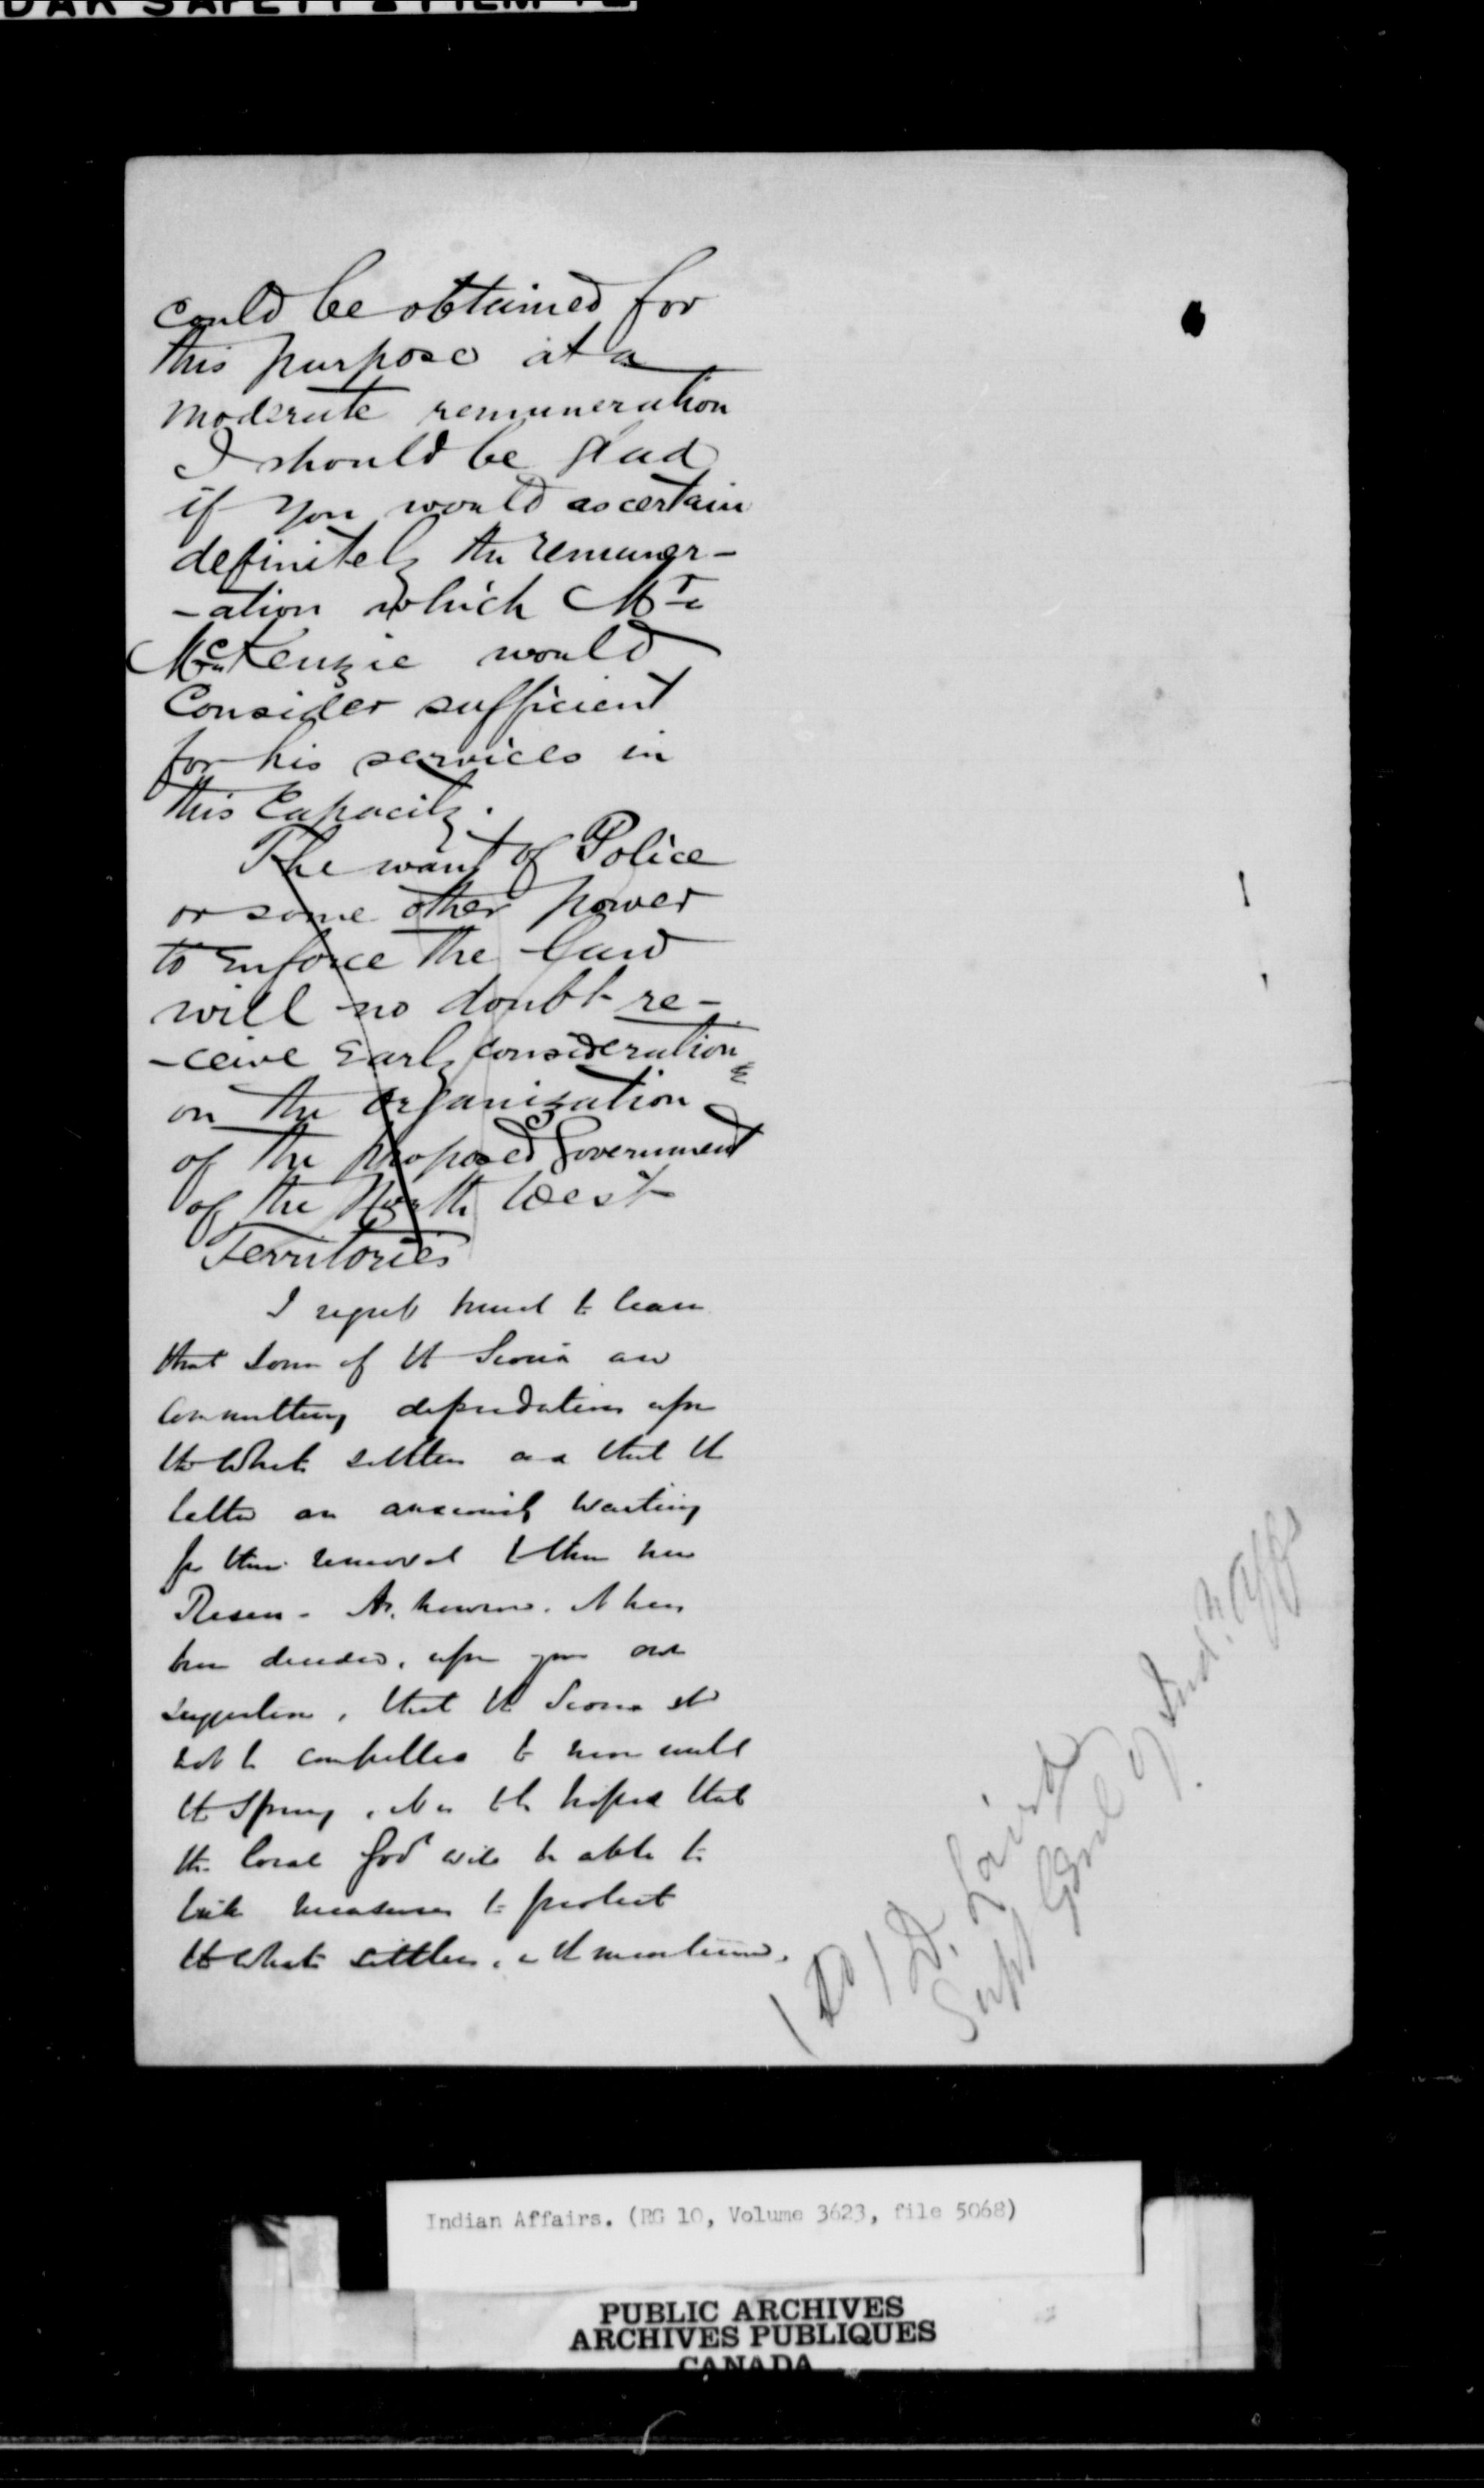 could be obtained for
this purpose at a
moderate remuneration
I should be glad
if you would ascertain
definitely the remuner-
-ation which Mr.
McKenzie would
Consider sufficient
for his services in
this Capacity.
The want of Police
or some other power
to Enforce the law
will no doubt re-
-ceive Early consideration
on the Organization
of the proposed Government
of the North West
Territories
I regret much to learn
that some of the Sioux are
committing depredations upon
the White settlers and that the
latter are anxiously waiting
for their removal to their new
Reserve. As, however, it has
been decided, upon your own
suggestion, that the Sioux shd
not be compelled to move until
the Spring, it is to be hoped that
the local Govt will be able to
take measures to protect
the White settlers, in the meantime.
(Sd) D. Laird
Supt Genl of Indn. Affs
Indian Affairs. (RG 10, Volume 3623, file 5068)
PUBLIC ARCHIVES
ARCHIVES PUBLIQUES
CANADA